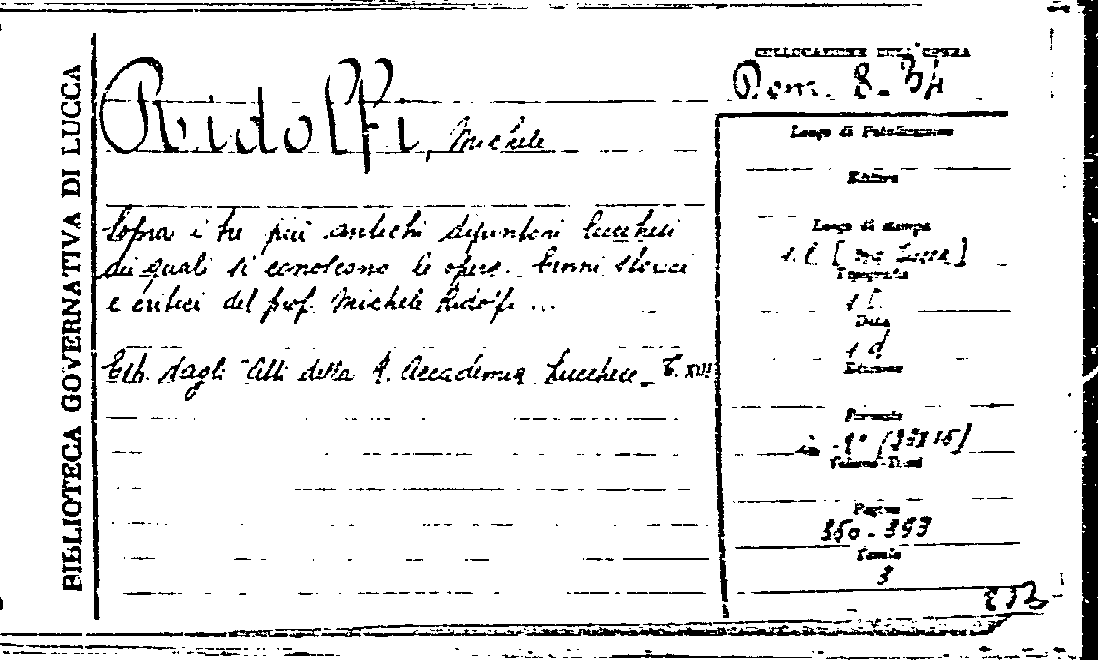 BIBLIOTECA GOVERNATIVA DI LUCCA
COLLOCAZIONE DELL'OPERA
Rom. 8. 34
Ridolfi, Michele
Sopra i tre più antichi dipintori lucchesi
dei quali si conoscono le opere. Cenni storici
e critici del prof. Michele Ridolfi ...
Estr. dagli Atti della R. Accademia Lucchese. T. XIII
Luogo di Pubblicazione
Editore
Luogo di stampa
s. l. [ma Lucca]
Tipografia
s. t.
Data
s. d.
Edizione
Formato
in 8°
Volume-Tomi
Pagine
350-393
Tavole